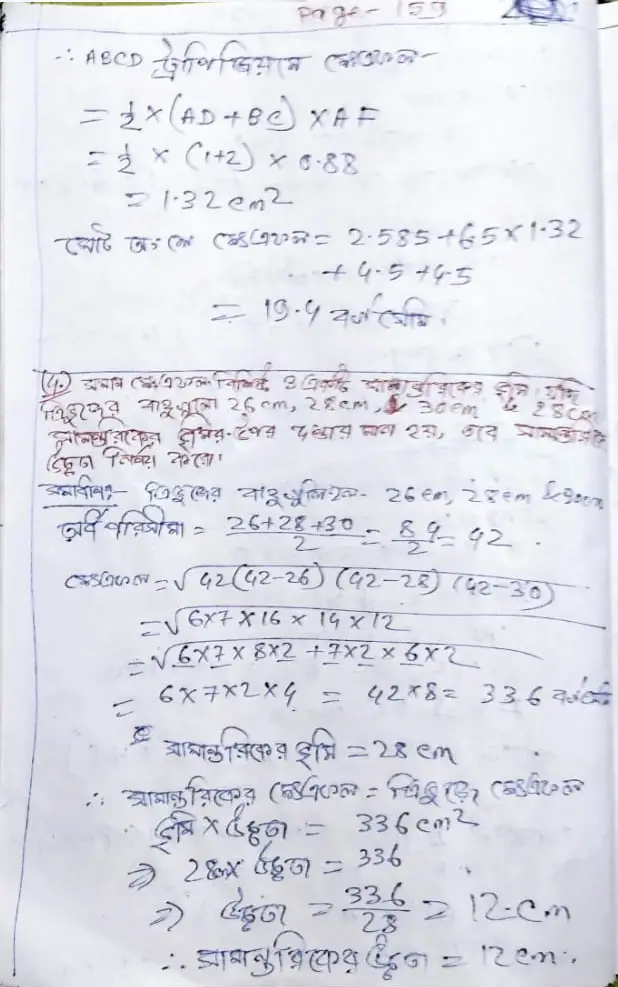 Page - 159
∴ ABCD ট্রাপিজিয়ামের ক্ষেত্রফল -
= ½ × (AD + BC) × AF
= ½ × (1+2) × 0.88
= 1.32 cm2
মোট ক্ষেত্রফল = 2.585 + 6.5 × 1.32
+ 4.5 + 4.5
= 19.4 বর্গ সেমি.
(4.) সমান ক্ষেত্রফল বিশিষ্ট ত্রিভুজ
ত্রিভুজের বাহুগুলো 26 cm, 28 cm, 30 cm & 28 cm
সামন্তরিকের ভূমির উপর হয়, তবে
উচ্চতা নির্ণয় করো।
সমাধান:- ত্রিভুজের বাহুগুলি হল- 26 cm, 28 cm & 30 cm
অর্ধ পরিসীমা = 26+28+30/2 = 84/2 = 42.
ক্ষেত্রফল = √42(42-26) (42-28) (42-30)
= √6×7×16×14×12
= √6×7×8×2+7×2×6×2
= 6×7×2×4 = 42×8 = 336
সামান্তরিকের ভূমি = 28 cm
∴ সামান্তরিকের ক্ষেত্রফল = ত্রিভুজের ক্ষেত্রফল
ভূমি × উচ্চতা = 336 cm2
⇒ 28 × উচ্চতা = 336
⇒ উচ্চতা = 336/28 = 12 cm
∴ সামান্তরিকের উচ্চতা = 12 cm.